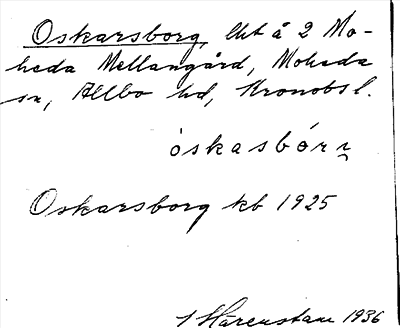 Oskarsborg, lht å 2 Mo-
heda Mellangård, Moheda
sn, Allbo hd, Kronobs l.
òskasbór
Oskarsborg kb 1925
Härenstam 1936